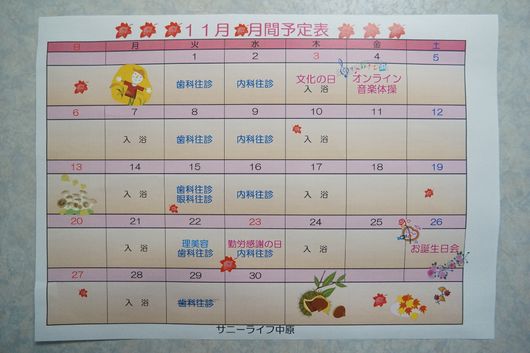 11月 月間予定表
日 月 火 水 木 金 土
1 2 3 4 5
歯科往診 内科往診 文化の日 オンライン
入浴 音楽体操
6 7 8 9 10 11 12
入浴 歯科往診 内科往診 入浴
13 14 15 16 17 18 19
入浴 歯科往診 内科往診 入浴
眼科往診
20 21 22 23 24 25 26
入浴 理美容 勤労感謝の日 入浴 お誕生日会
歯科往診 内科往診
27 28 29 30
入浴 歯科往診
サニーライフ中原